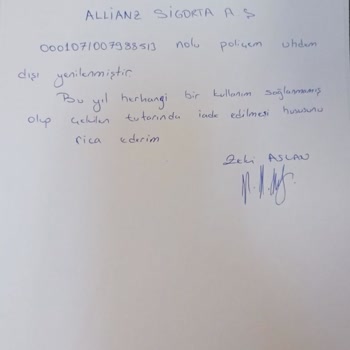 ALLİANZ SİGORTA A Ş
0001071007988513 nolu poliçem uhdem
dışı yenilenmiştir
Bu yıl herhangi bir kullanım sağlanmamış
olup tutarında iade edilmesi hususunu
rica ederim
Zeki ASLAN